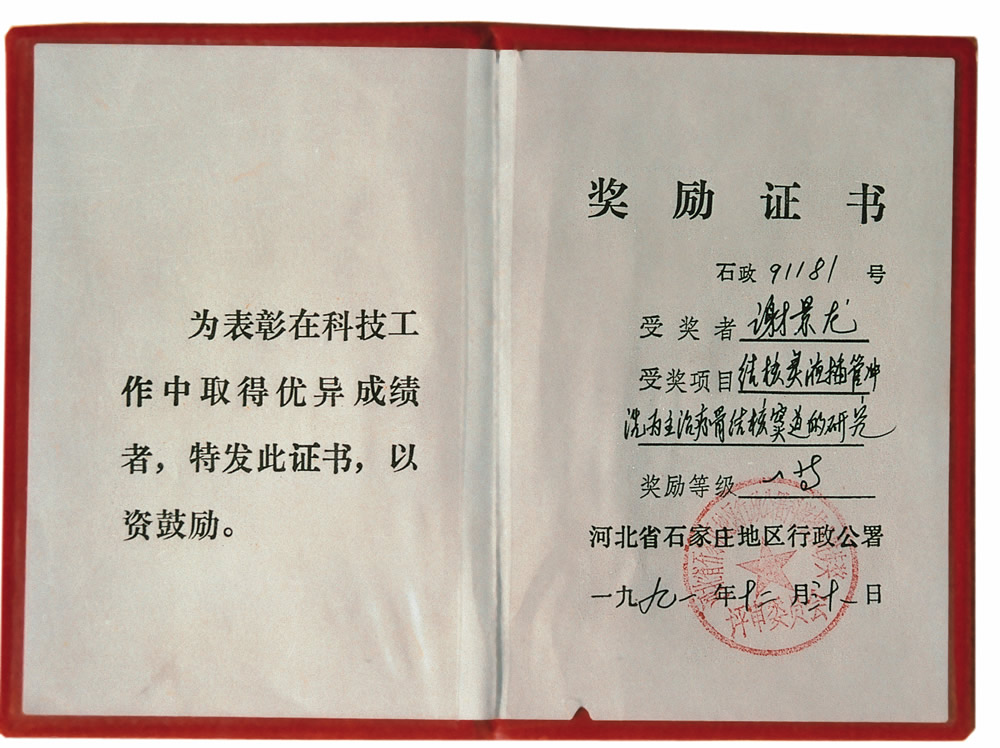 为表彰在科技工
作中取得优异成绩
者，特发此证书，以
资鼓励。
奖励证书
石政 91181 号
受奖者 谢景龙
受奖项目 结核灵液插管冲
洗为主治疗骨结核窦道的研究
奖励等级 一等
河北省石家庄地区行政公署
一九九一年十二月三十一日
评审委员会